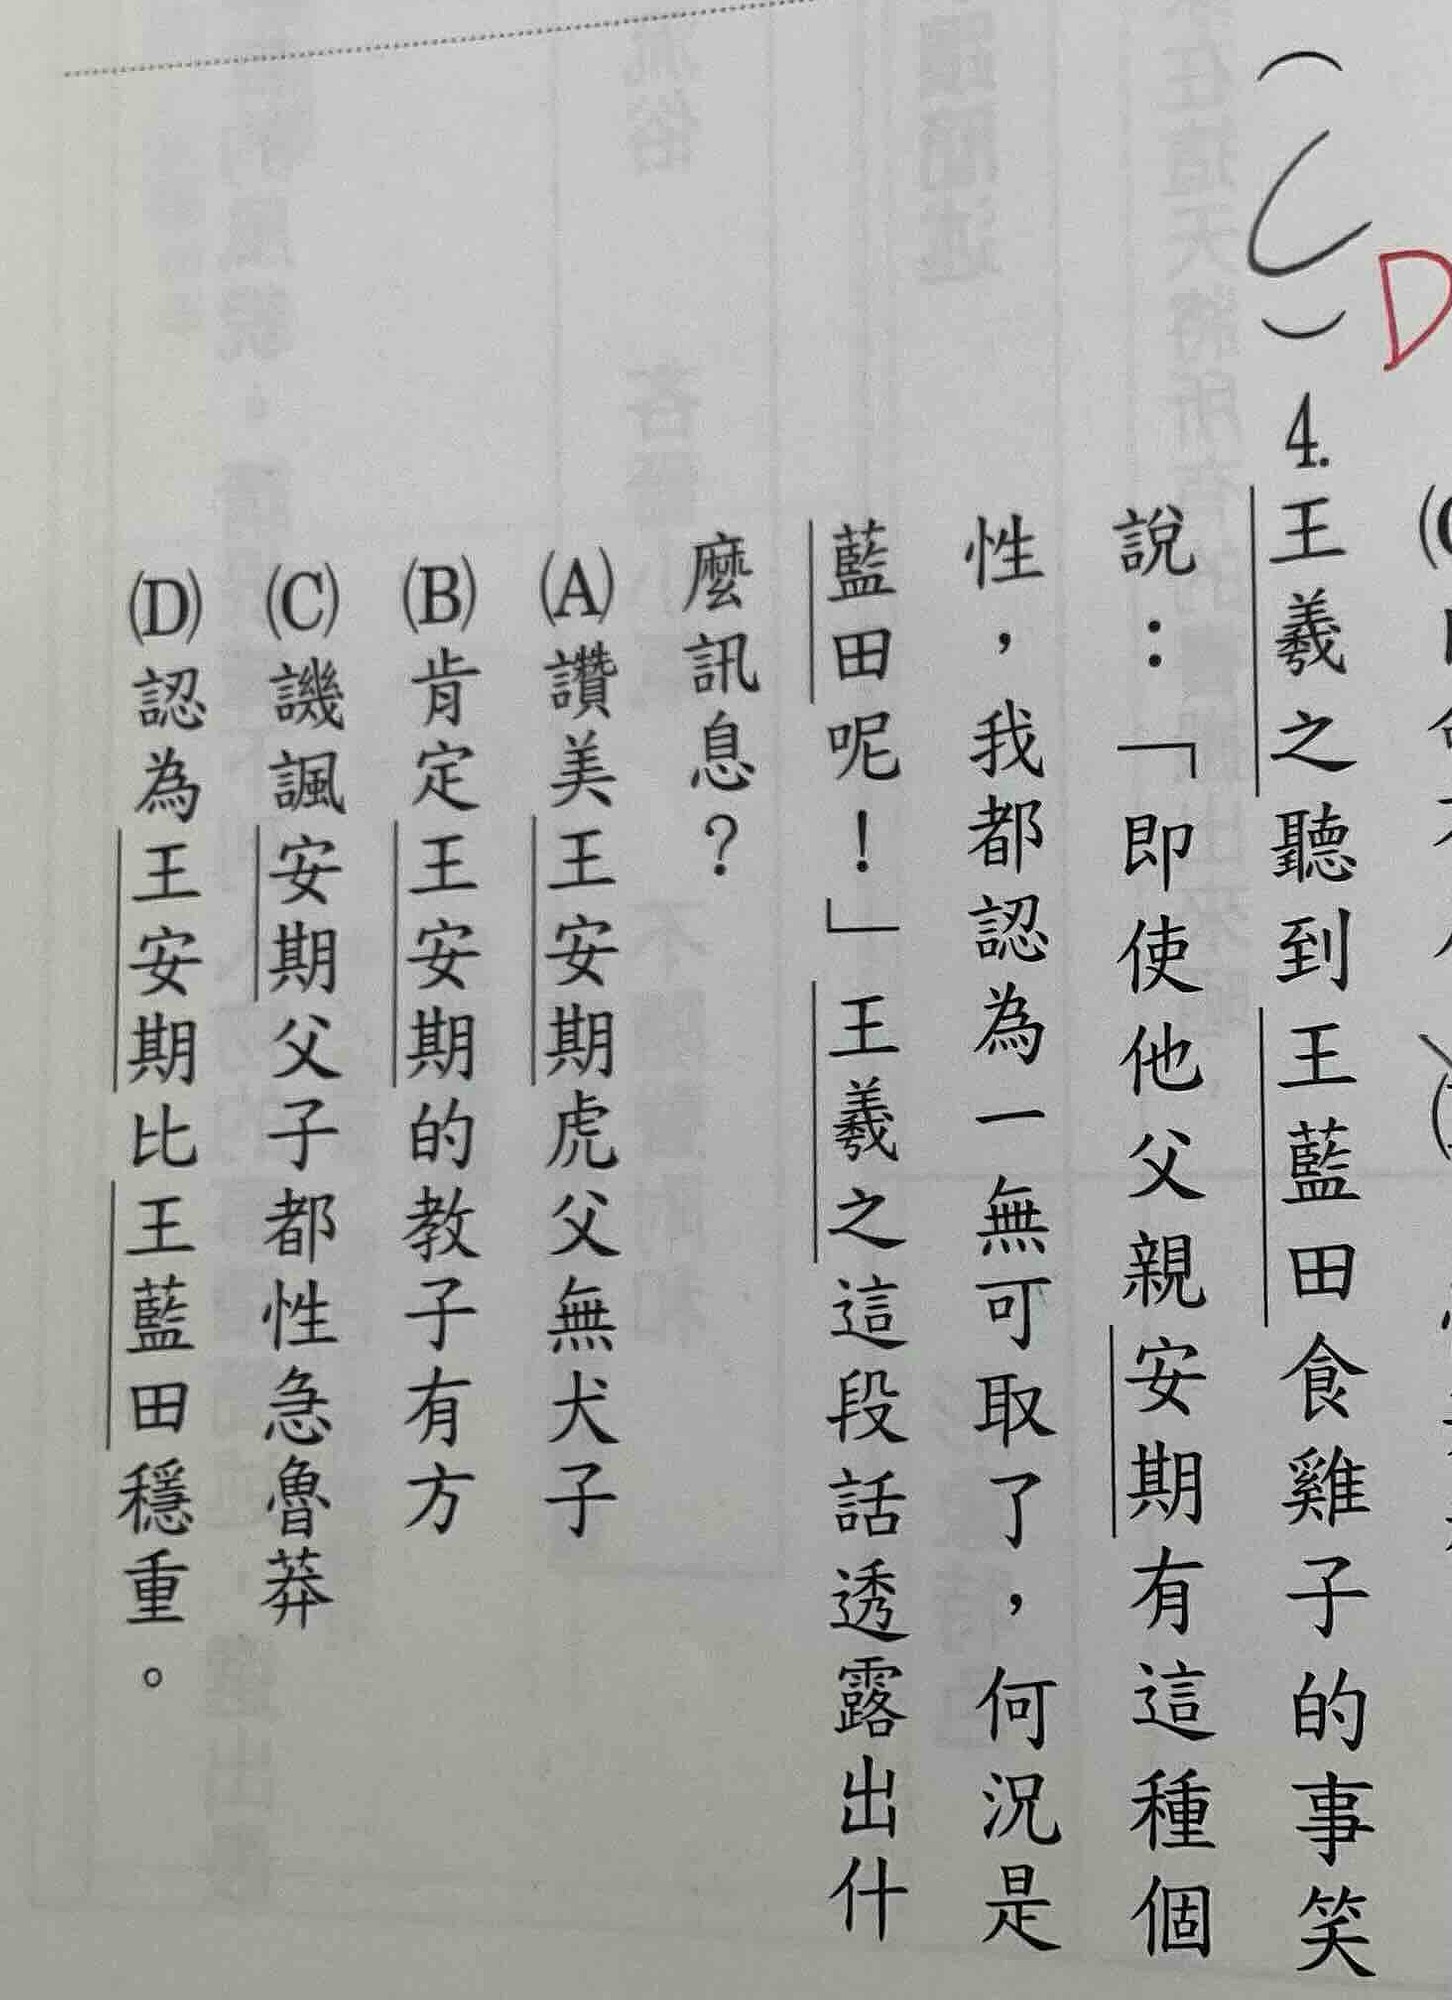 (C) D
4.王羲之聽到王藍田食雞子的事笑
說：「即使他父親安期有這種個
性，我都認為一無可取了，何況是
藍田呢！」王羲之這段話透露出什
麼訊息？
(A)讚美王安期虎父無犬子
(B)肯定王安期的教子有方
(C)譏諷安期父子都性急魯莽
(D)認為王安期比王藍田穩重。